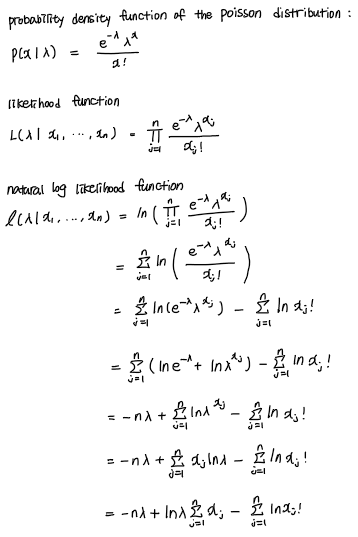 probability density function of the poisson distribution :
P(x|λ) = e^{-λ} λ^x / x!
likelihood function
L(λ| x₁, ⋯, xₙ) = ∏_{j=1}^{n} e^{-λ} λ^{x_j} / x_j!
natural log likelihood function
ℓ(λ| x₁, ⋯, xₙ) = ln ( ∏_{j=1}^{n} e^{-λ} λ^{x_j} / x_j! )
= ∑_{j=1}^{n} ln ( e^{-λ} λ^{x_j} / x_j! )
= ∑_{j=1}^{n} ln(e^{-λ} λ^{x_j}) - ∑_{j=1}^{n} ln x_j!
= ∑_{j=1}^{n} (ln e^{-λ} + ln λ^{x_j}) - ∑_{j=1}^{n} ln x_j!
= -nλ + ∑_{j=1}^{n} ln λ^{x_j} - ∑_{j=1}^{n} ln x_j!
= -nλ + ∑_{j=1}^{n} x_j ln λ - ∑_{j=1}^{n} ln x_j!
= -nλ + ln λ ∑_{j=1}^{n} x_j - ∑_{j=1}^{n} ln x_j!